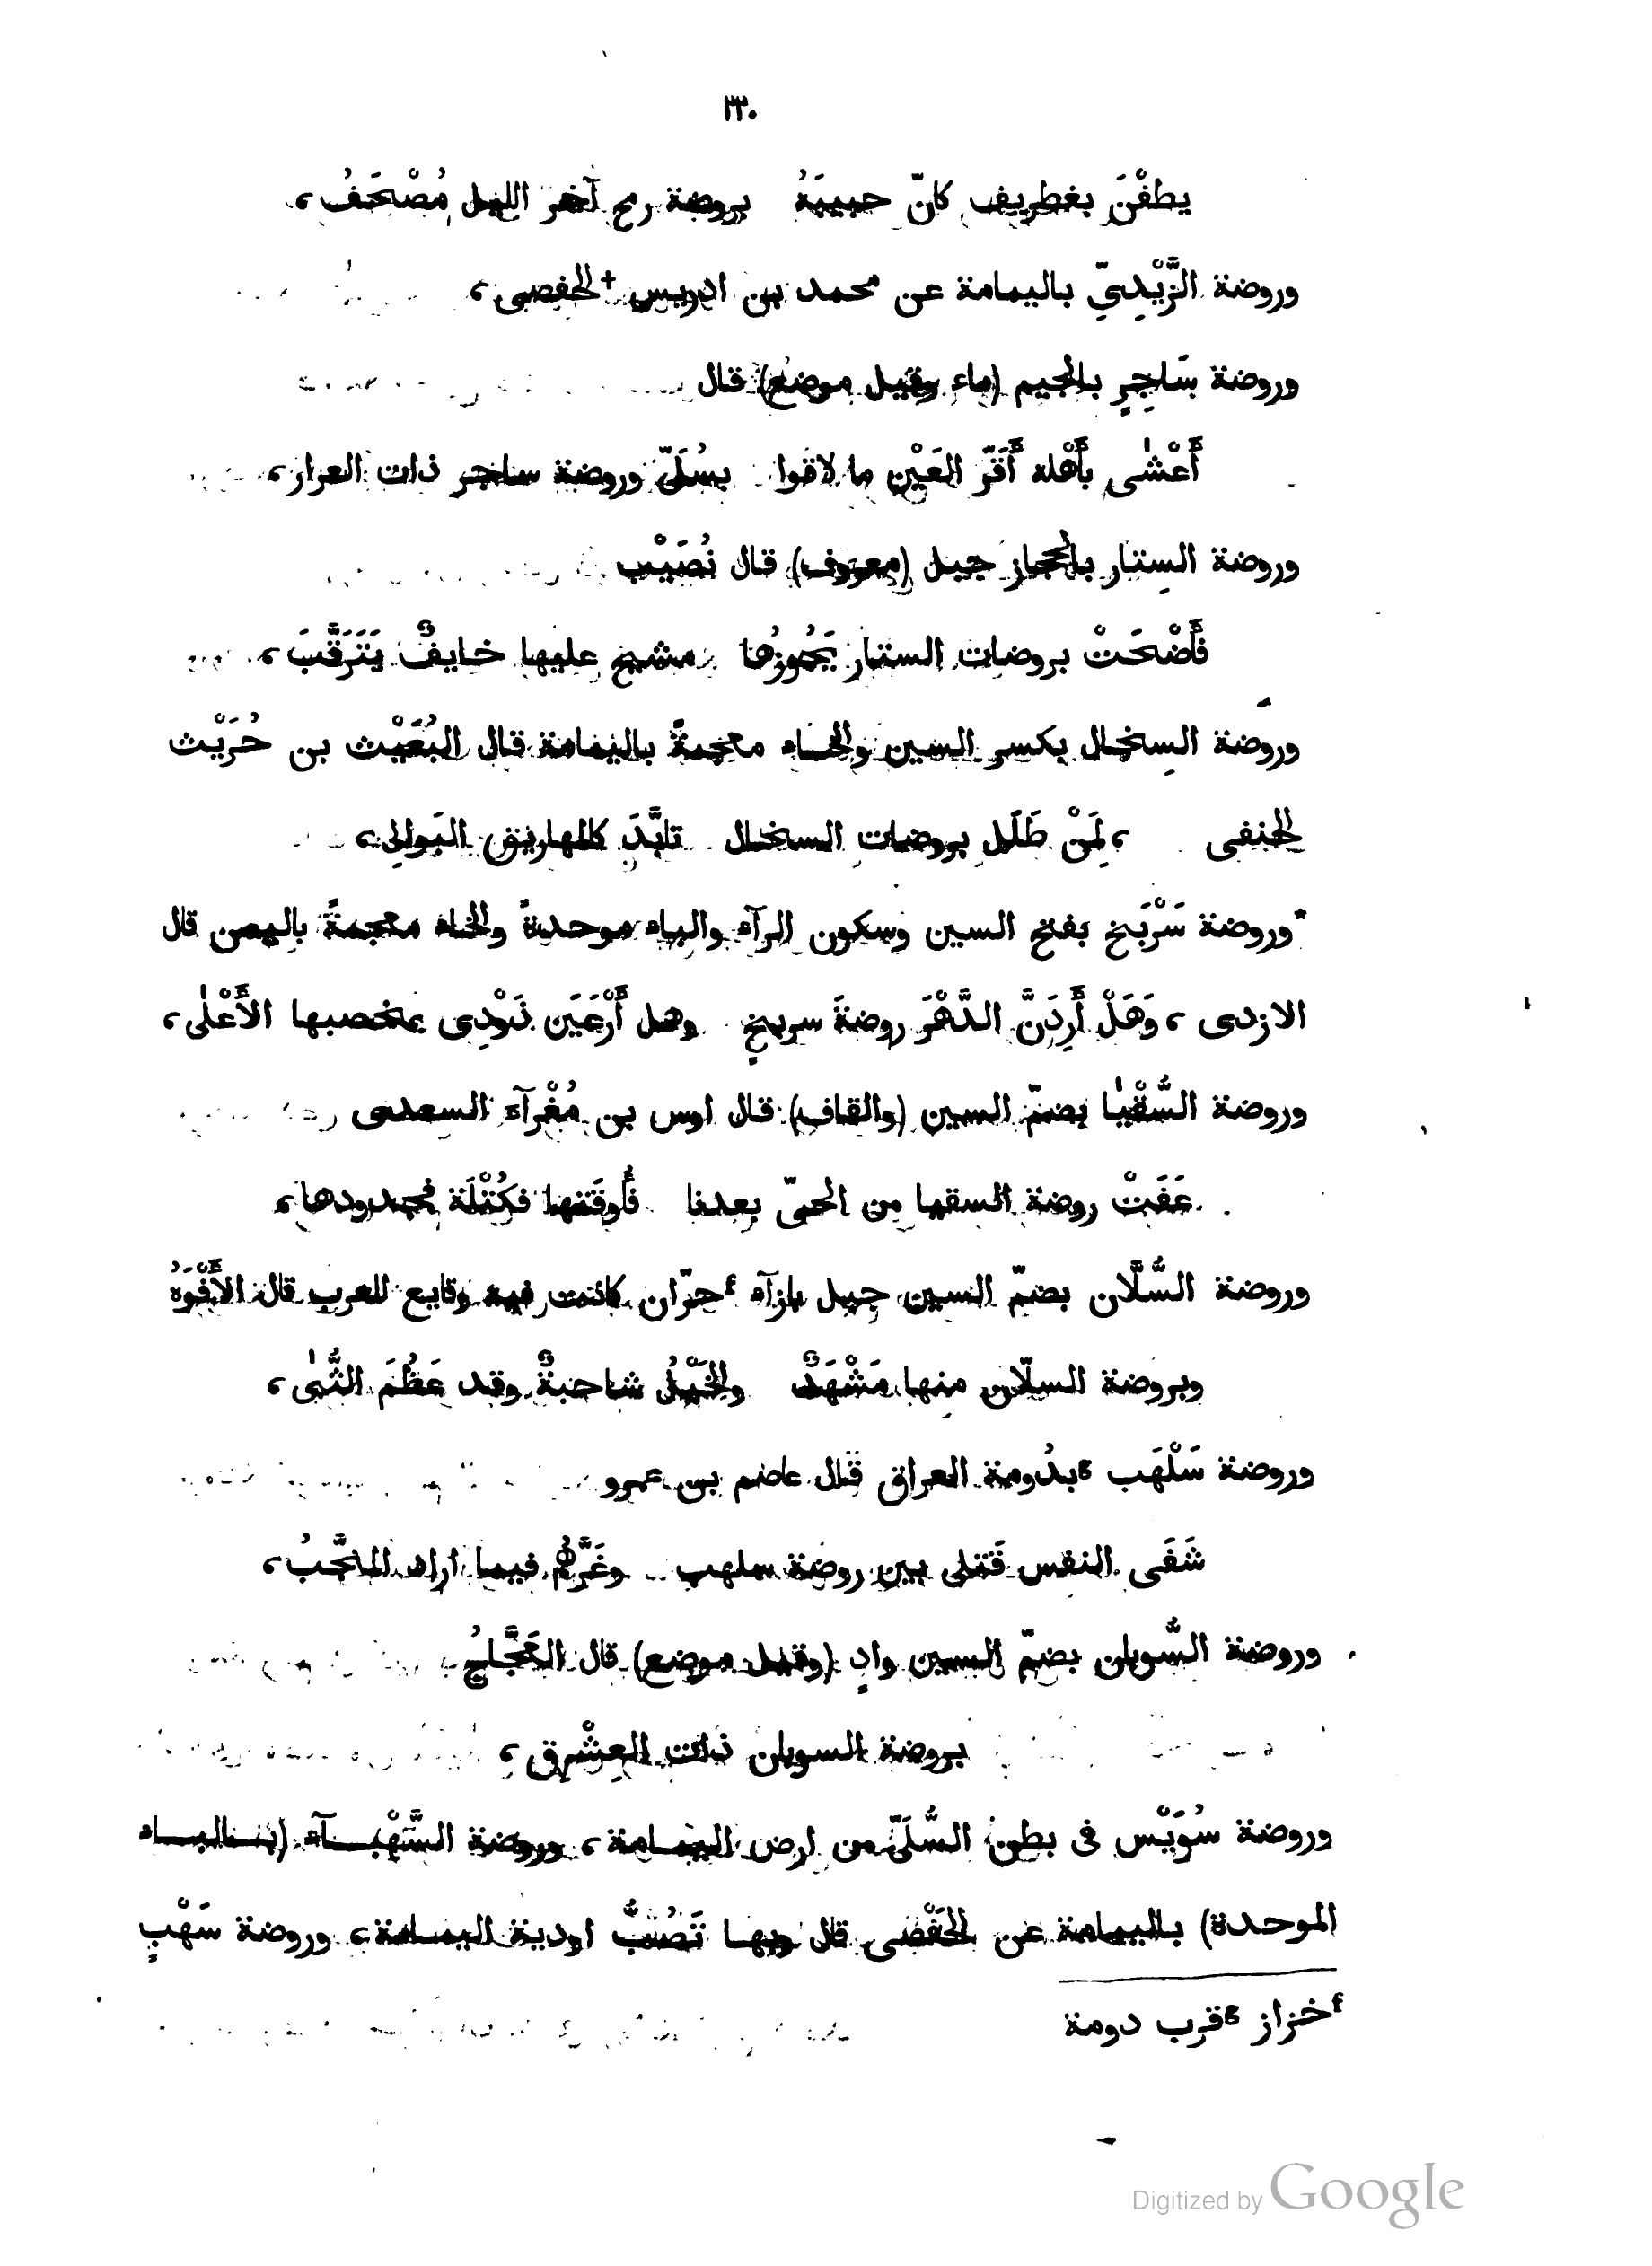 ٢٣٠
يطفْنَ بغطريف كانّ حبيبَهُ بروضة رمح آخر الليل مُصْحَفُ،
وروضة الزَّيْدِيّ باليمامة عن محمد بن ادريس +الحفصى،
وروضة سَاجِرٍ بالجيم (ماء وقيل موضع) قال
أَعْشٰى بأَهْله أَقَرّ العَيْن ما لاقوا بسُلَىّ وروضة ساجر ذات العرار،
وروضة السِتار بالحجاز جبل (معروف) قال نُصَيْب
فأَضْحَتْ بروضات الستار يَجُوزُها مشيح عليها خايفٌ يَتَرَقَّبَ،
وروضة السِخال بكسر السين والخاء معجمةً باليمامة قال البُعَيْث بن حُرَيْث
الحنفى ،لِمَنْ طَلَل بروضات السخال تابَّدَ كالمهاريق البَوالِى،
*وروضة سَرْبَخ بفتح السين وسكون الرآء والباء موحدةً والخاء معجمةً باليمن قال
الازدى ، وَهَلْ أَرِدَنَّ الدَّهْرَ روضةَ سربخٍ وهل أَرْعَيَن ذَوْدِى بمخصبها الأَعْلٰى،
وروضة السُّقْيٰا بضمّ السين (والقاف) قال اوس بن مُغْرآء السعدى
عَفَتْ روضة السقيا من الحىّ بعدنا فأُوقَتها فكُتْلَة فجدودها،
وروضة السُّلَّان بضمّ السين جبل بازآء ᶠحزّان كانت فيه وقايع للعرب قال الأَفْوَهُ
وبروضة السلّان منها مَشْهَدٌ والخَيْلُ شاحبةٌ وقد عَظُمَ الثُّبٰى،
وروضة سَلْهَب ᵍبدُومة العراق قال عاصم بن عمرو
شَفَى النفس قَتلى بين روضة سلهب وغَرَّهُم فيما اراد المنجَّبُ،
وروضة السُّوبان بضمّ السين وادٍ (وقيل موضع) قال العَجَّاجُ
بروضة السوبان ذات العِشْرِق،
وروضة سُوَيْس فى بطن السُّلَىّ من ارض اليمامة، وروضة السَّهْبآء (بالباء
الموحدة) باليمامة عن الحَفْصى قال وبها تَصُبُّ اودية اليمامة، وروضة سَهْبٍ
ᶠخزاز ᵍقرب دومة
Digitized by Google